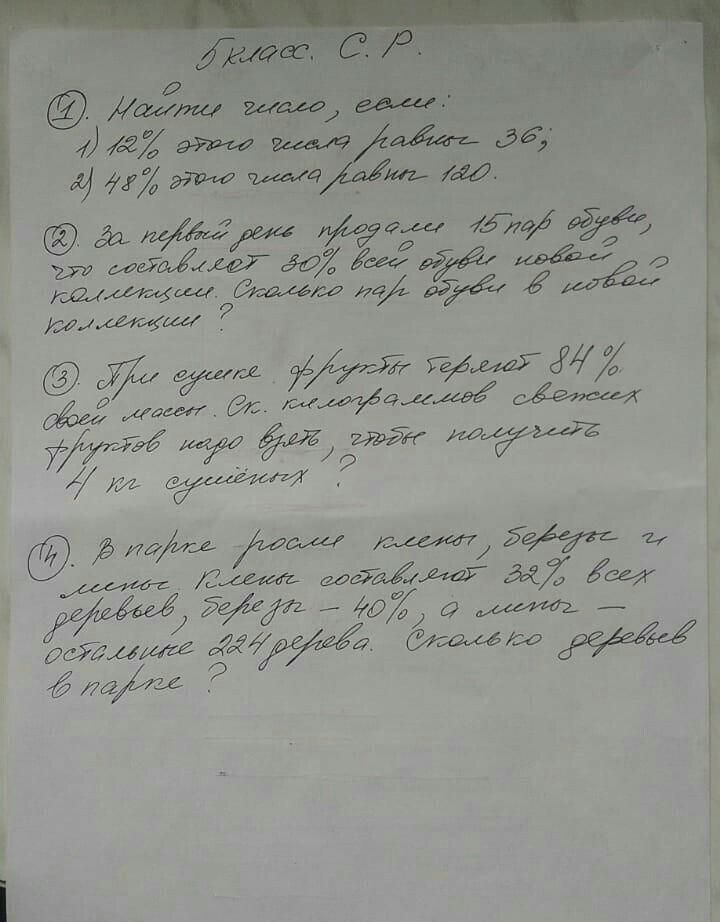 5 класс. С. Р.
1. Найти число, если:
1) 12% этого числа равны 36;
2) 48% этого числа равны 120.
2. За первый день продали 15 пар обуви,
что составляет 30% всей обуви новой
коллекции. Сколько пар обуви в новой
коллекции?
3. При сушке фрукты теряют 84%
своей массы. Ск. килограммов свежих
фруктов надо взять, чтобы получить
4 кг сушёных?
4. В парке росли клены, березы и
липы. Клены составляют 32% всех
деревьев, березы - 40%, а липы -
остальные 224 дерева. Сколько деревьев
в парке?